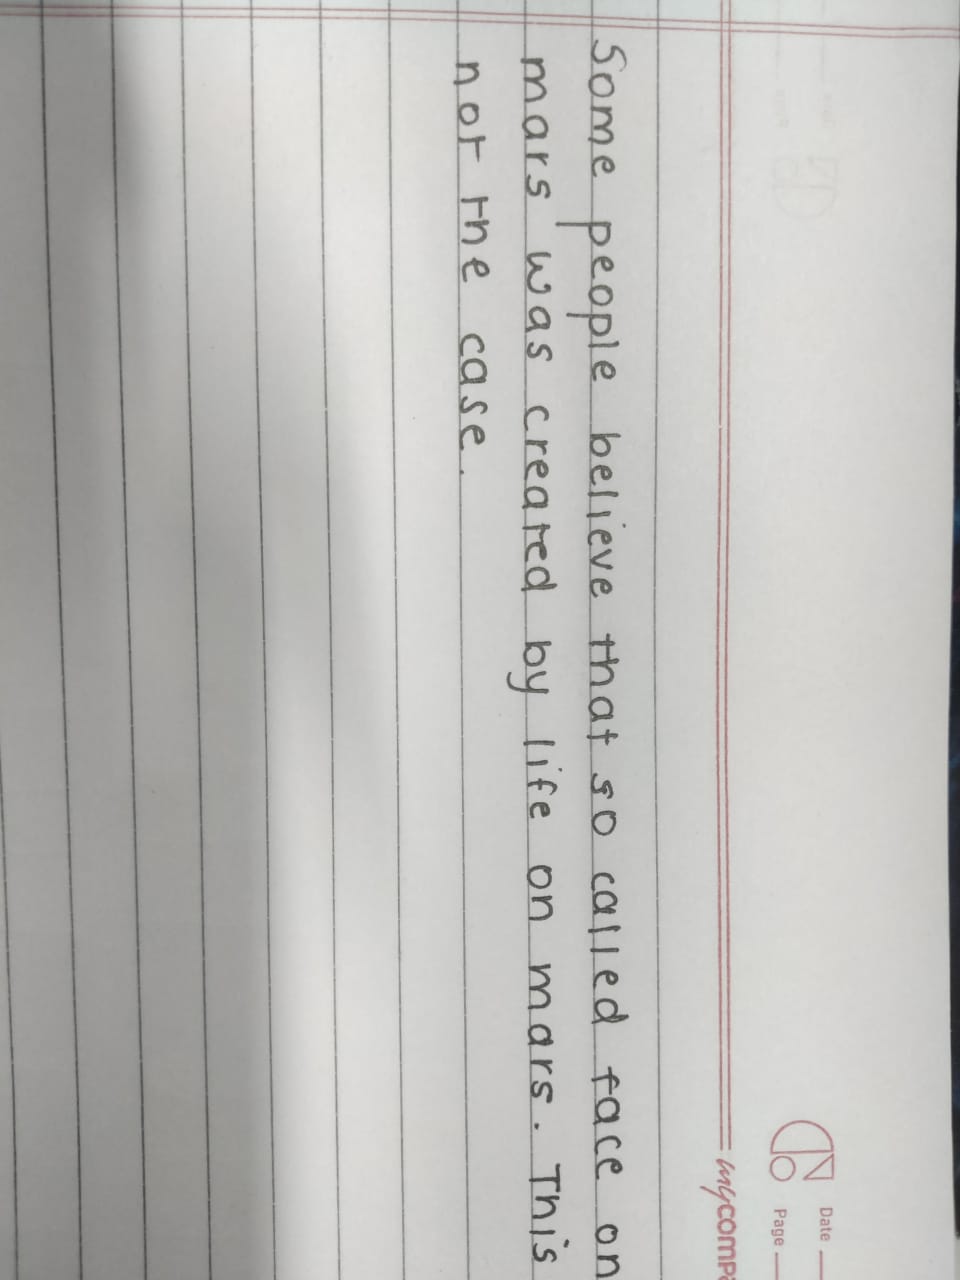 Date
Page
Some people believe that so called face on
mars was created by life on mars. This
not the case.